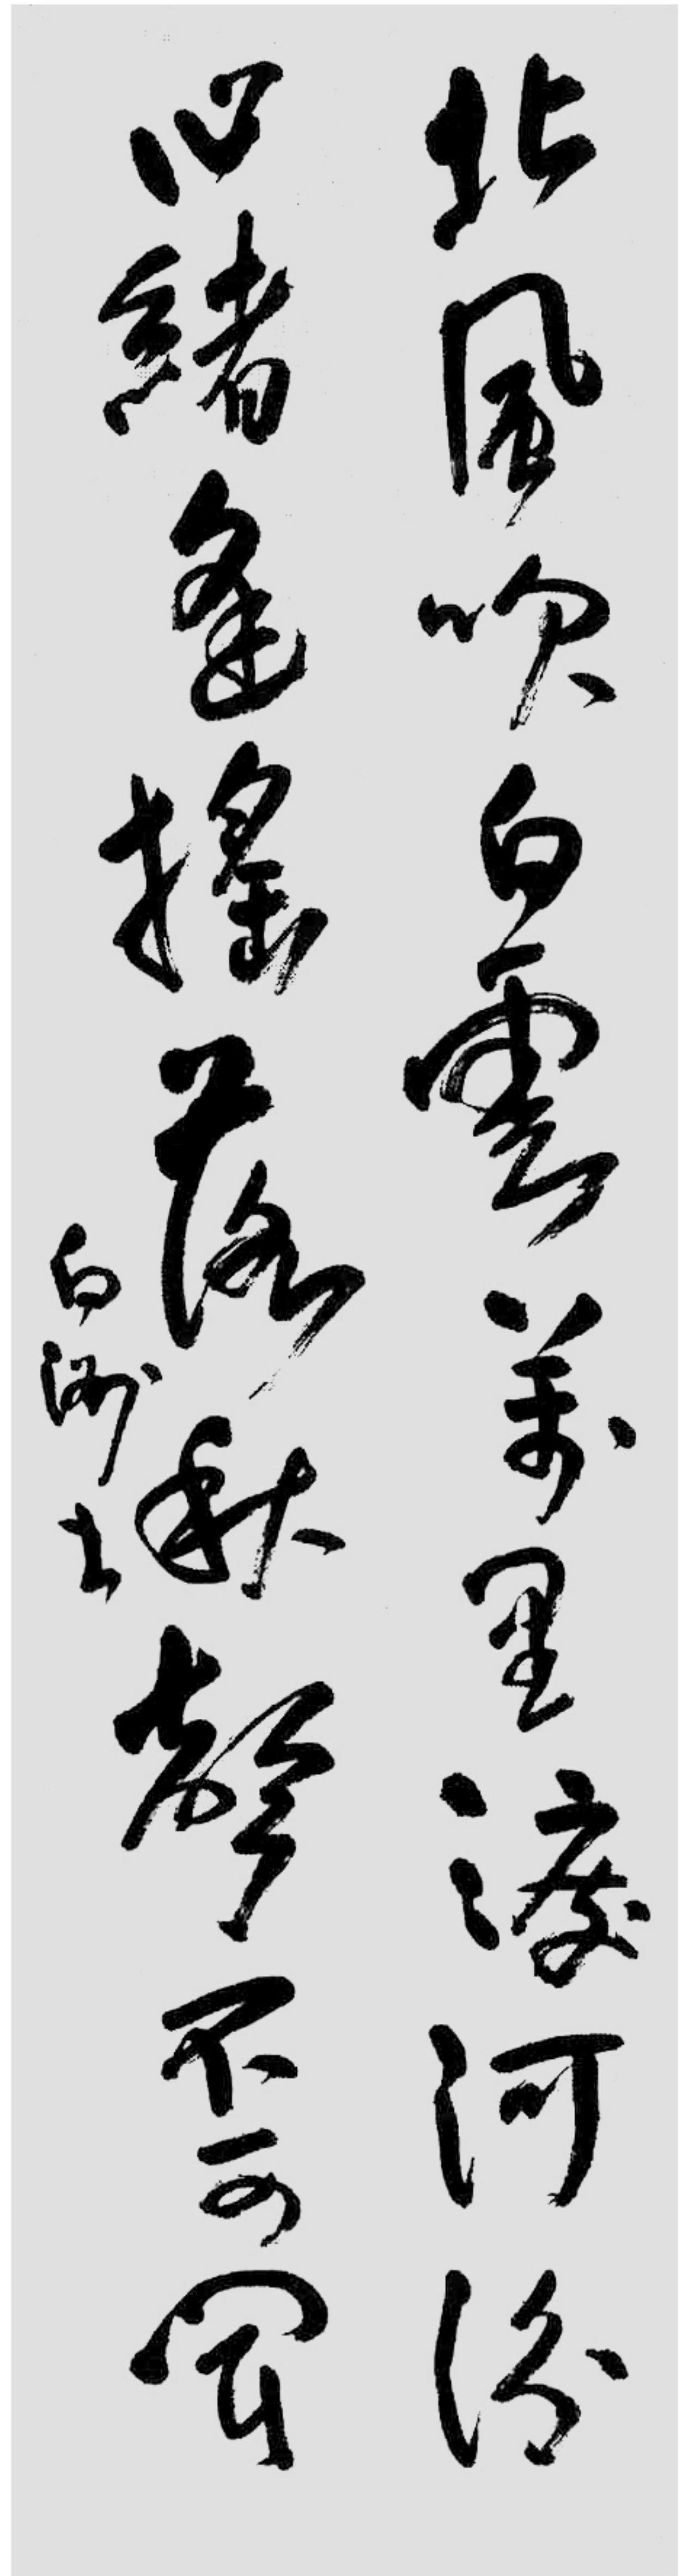 北風吹白雲萬里渡河汾
心緒逢搖落秋聲不可聞
白洲書